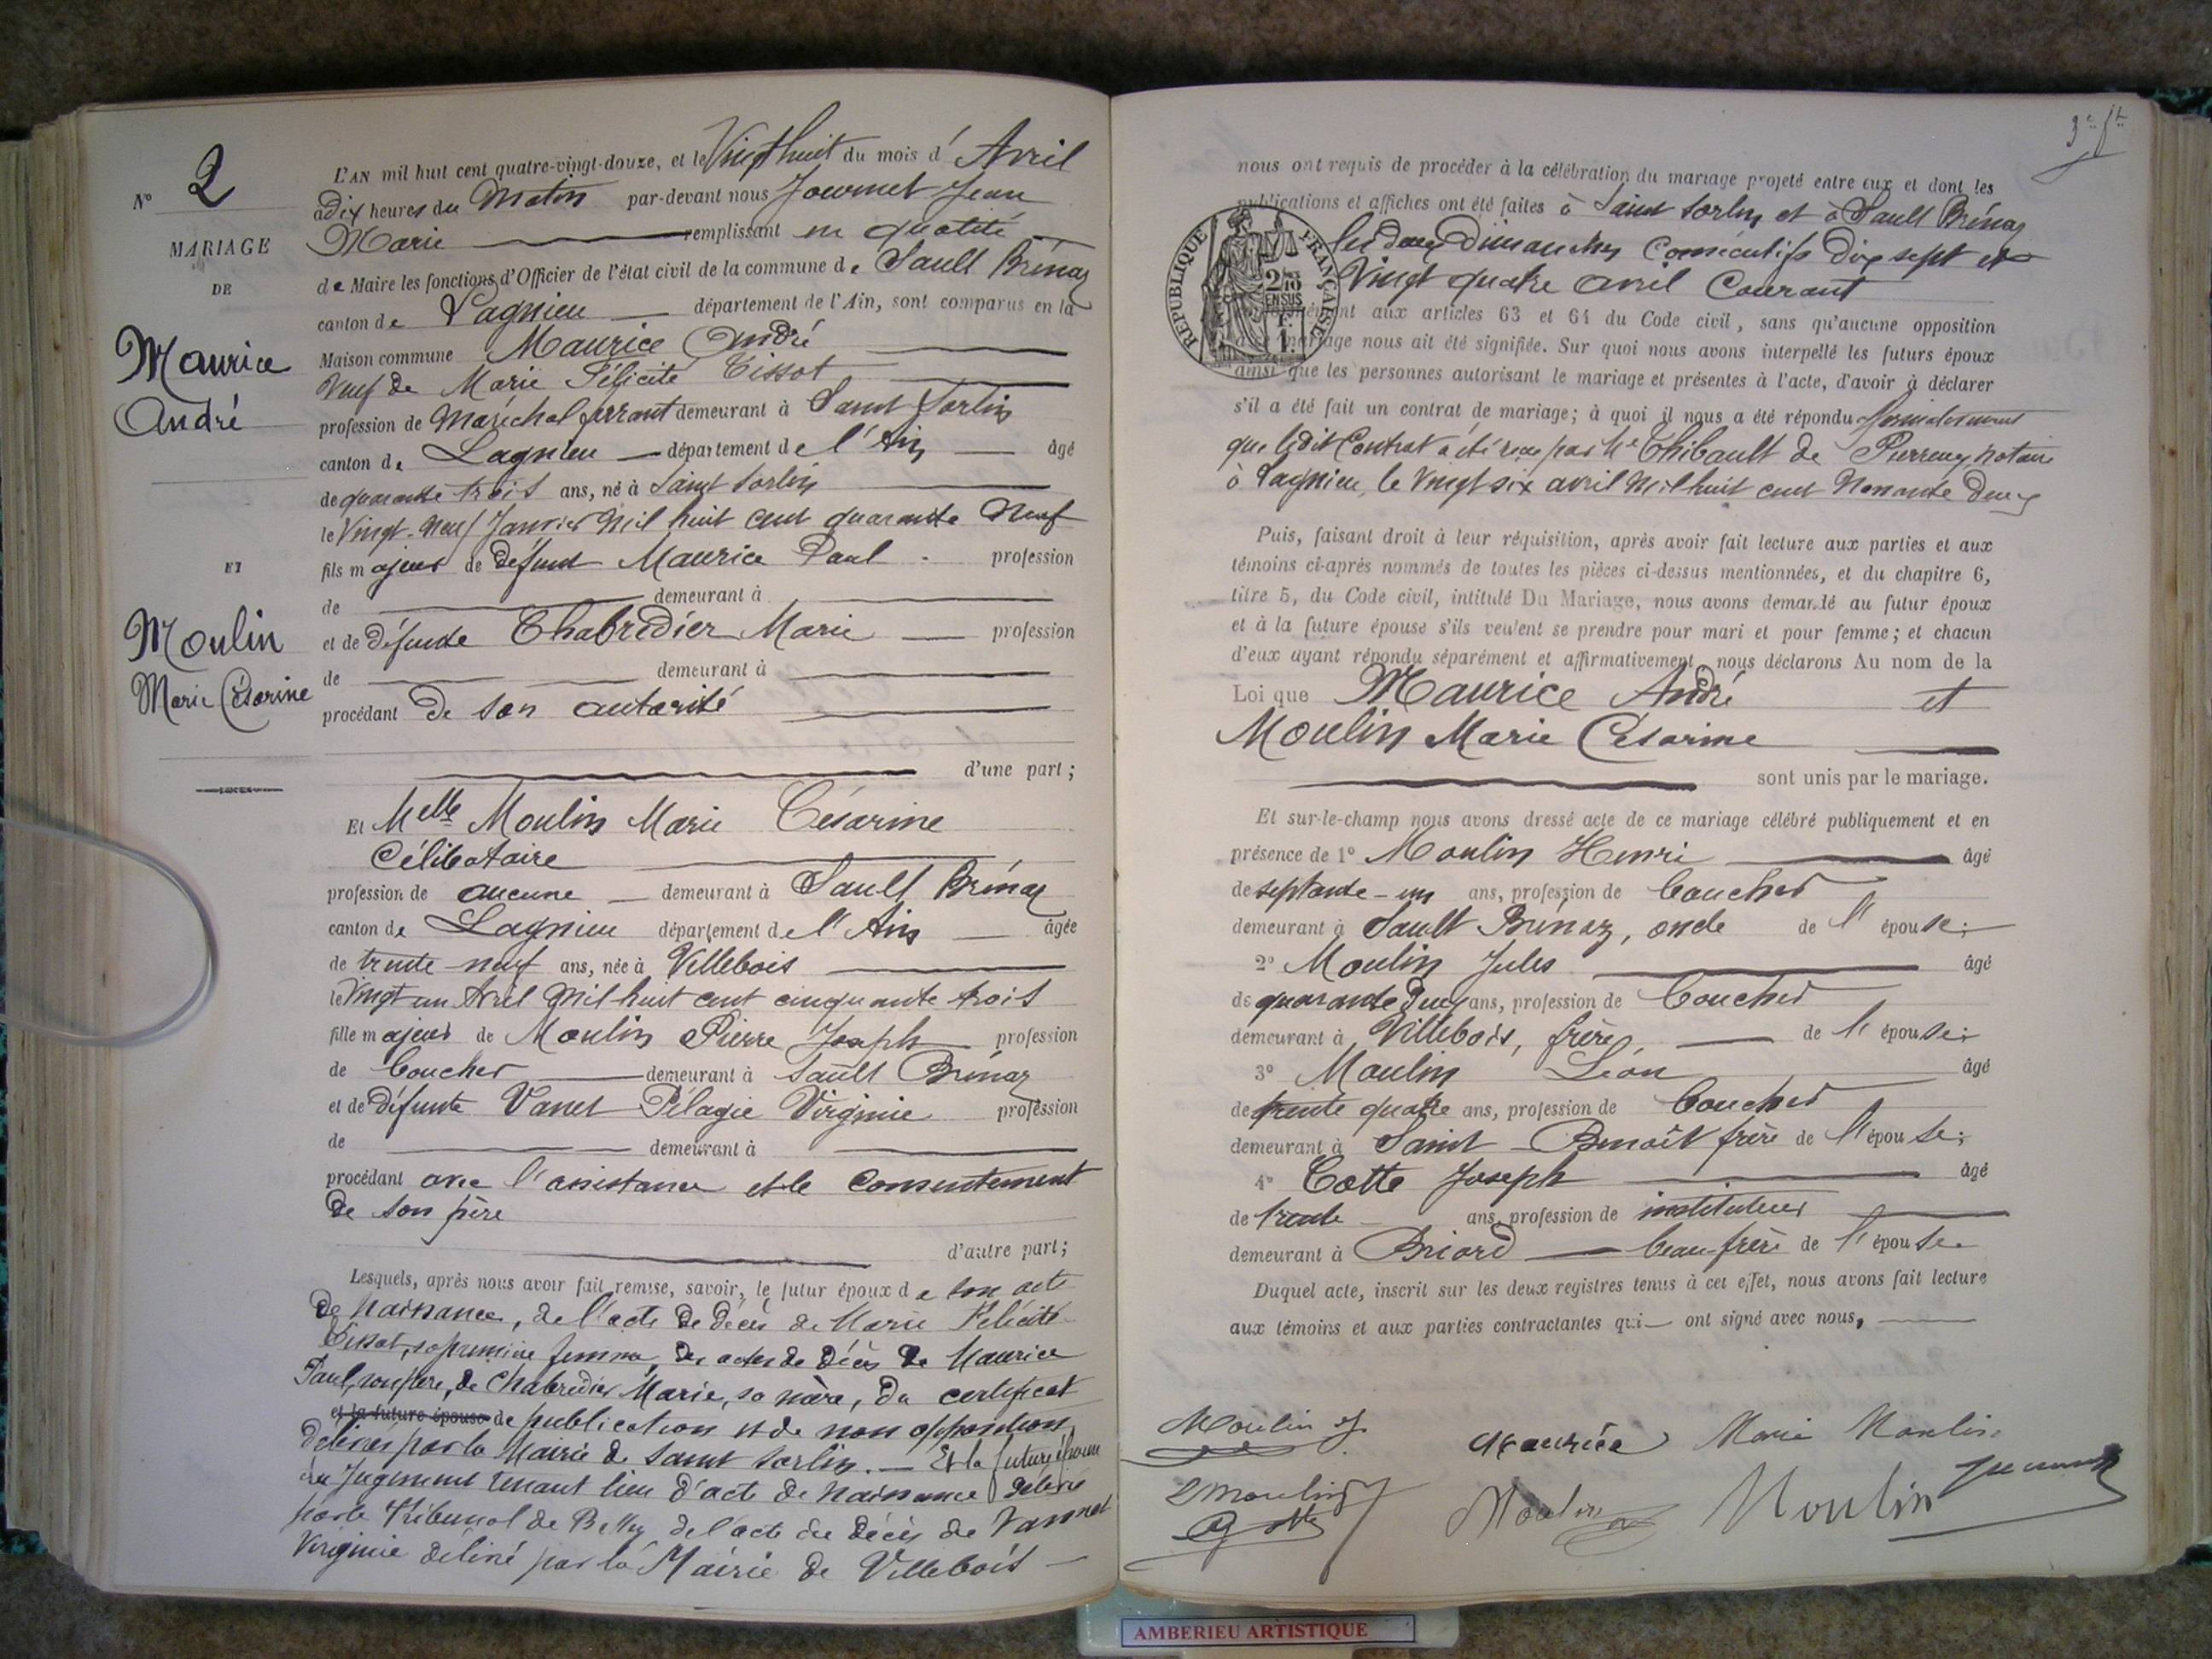 N° 2
MARIAGE
DE
Maurice
André
ET
Moulin
Marie Césarine
L'AN mil huit cent quatre-vingt-douze, et le Vingt huit du mois d' Avril
à dix heures du Matin par-devant nous Journet Jean
Marie remplissant en qualité
de Maire les fonctions d'Officier de l'état civil de la commune de Sault Brénaz
canton de Lagnieu département de l'Ain, sont comparus en la
Maison commune Maurice André
Veuf de Marie Félicité Tissot
profession de Maréchal ferrant demeurant à Saint Sorlin
canton de Lagnieu département de l'Ain âgé
de quarante trois ans, né à Saint Sorlin
le Vingt-neuf Janvier Mil huit cent quarante Neuf
fils majeur de défunt Maurice Paul profession
de demeurant à
et de défunte Chabredier Marie profession
de demeurant à
procédant de son autorité
d'une part;
Et Melle Moulin Marie Césarine
Célibataire
profession de aucune demeurant à Sault Brénaz
canton de Lagnieu département de l'Ain âgée
de trente-neuf ans, née à Villebois
le Vingt un Avril Mil huit cent cinquante trois
fille majeur de Moulin Pierre Joseph profession
de boucher demeurant à Sault Brénaz
et de défunte Vanet Pélagie Virginie profession
de demeurant à
procédant avec l'assistance et le Consentement
de son père
d'autre part;
Lesquels, après nous avoir fait remise, savoir, le futur époux de son acte
de Naissance, de l'acte de décès de Marie Félicité
Tissot, sa première femme, des actes de décès de Maurice
Paul, son père, de Chabredier Marie, sa mère, du certificat
et la future épouse de publication et de non opposition
délivrés par la Mairie de Saint Sorlin. — Et la future épouse
du Jugement tenant lieu d'acte de Naissance délivré
par le Tribunal de Belley de l'acte de décès de Vannet
Virginie délivré par la Mairie de Villebois —
nous ont requis de procéder à la célébration du mariage projeté entre eux et dont les
publications et affiches ont été faites à Saint Sorlin et à Sault Brénaz
les deux Dimanches Consécutifs Dix sept et
Vingt quatre avril Courant
RÉPUBLIQUE FRANÇAISE
2/10 EN SUS
1 F.
conformément aux articles 63 et 64 du Code civil, sans qu'aucune opposition
audit mariage nous ait été signifiée. Sur quoi nous avons interpellé les futurs époux
ainsi que les personnes autorisant le mariage et présentes à l'acte, d'avoir à déclarer
s'il a été fait un contrat de mariage; à quoi il nous a été répondu
que ledit Contrat a été reçu par Me Thibault de Pierreux, notaire
à Lagnieu, le Vingt six avril Mil huit cent Nonante deux
Puis, faisant droit à leur réquisition, après avoir fait lecture aux parties et aux
témoins ci-après nommés de toutes les pièces ci-dessus mentionnées, et du chapitre 6,
titre 5, du Code civil, intitulé Du Mariage, nous avons demandé au futur époux
et à la future épouse s'ils veulent se prendre pour mari et pour femme; et chacun
d'eux ayant répondu séparément et affirmativement, nous déclarons Au nom de la
Loi que Maurice André et
Moulin Marie Césarine
sont unis par le mariage.
Et sur-le-champ nous avons dressé acte de ce mariage célébré publiquement et en
présence de 1° Moulin Henri âgé
de septante-un ans, profession de boucher
demeurant à Sault Brénaz, oncle de l'épouse;
2° Moulin Jules âgé
de quarante deux ans, profession de boucher
demeurant à Villebois, frère de l'épouse;
3° Moulin Léon âgé
de trente quatre ans, profession de boucher
demeurant à Saint-Benoît frère de l'épouse;
4° Cotte Joseph âgé
de trente ans, profession de instituteur
demeurant à Briord beau-frère de l'épouse.
Duquel acte, inscrit sur les deux registres tenus à cet effet, nous avons fait lecture
aux témoins et aux parties contractantes qui ont signé avec nous,
Moulin J. Maurice Marie Moulin
L Moulin Moulin Moulin Journet
Cotte
AMBERIEU ARTISTIQUE